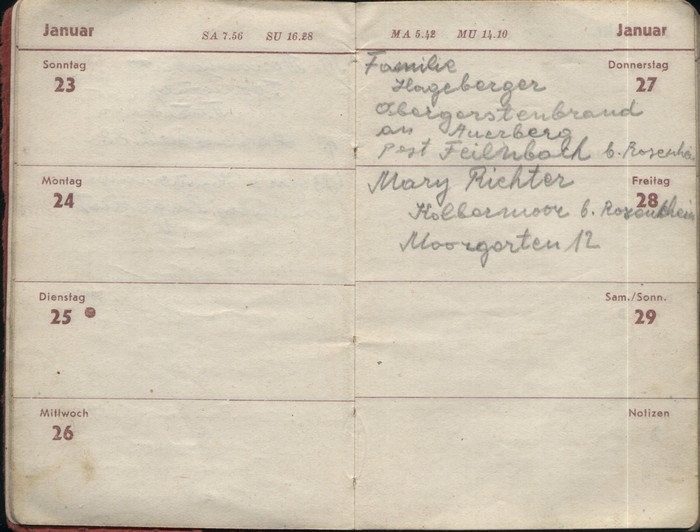 Januar SA 7.56 SU 16.28
Sonntag
23
Montag
24
Dienstag
25
Mittwoch
26
MA 5.42 MU 14.10 Januar
Donnerstag
27
Familie
Hageberger
Obergerstenbrand
am Auerberg
Post Feilnbach b. Rosenhei
Freitag
28
Mary Richter
Kolbermoor b. Rosenheim
Moorgarten 12
Sam./Sonn.
29
Notizen